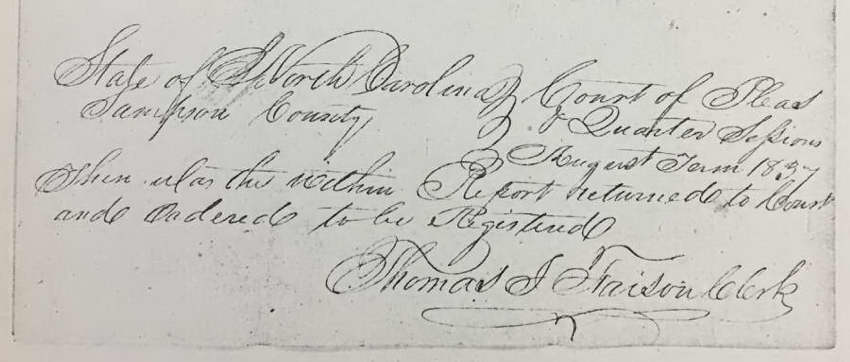 State of North Carolina } Court of Pleas
Sampson County } & Quarter Sessions
} August Term 1837
Then was the within Report returned to Court
and Ordered to be Registered
Thomas I Faison Clerk